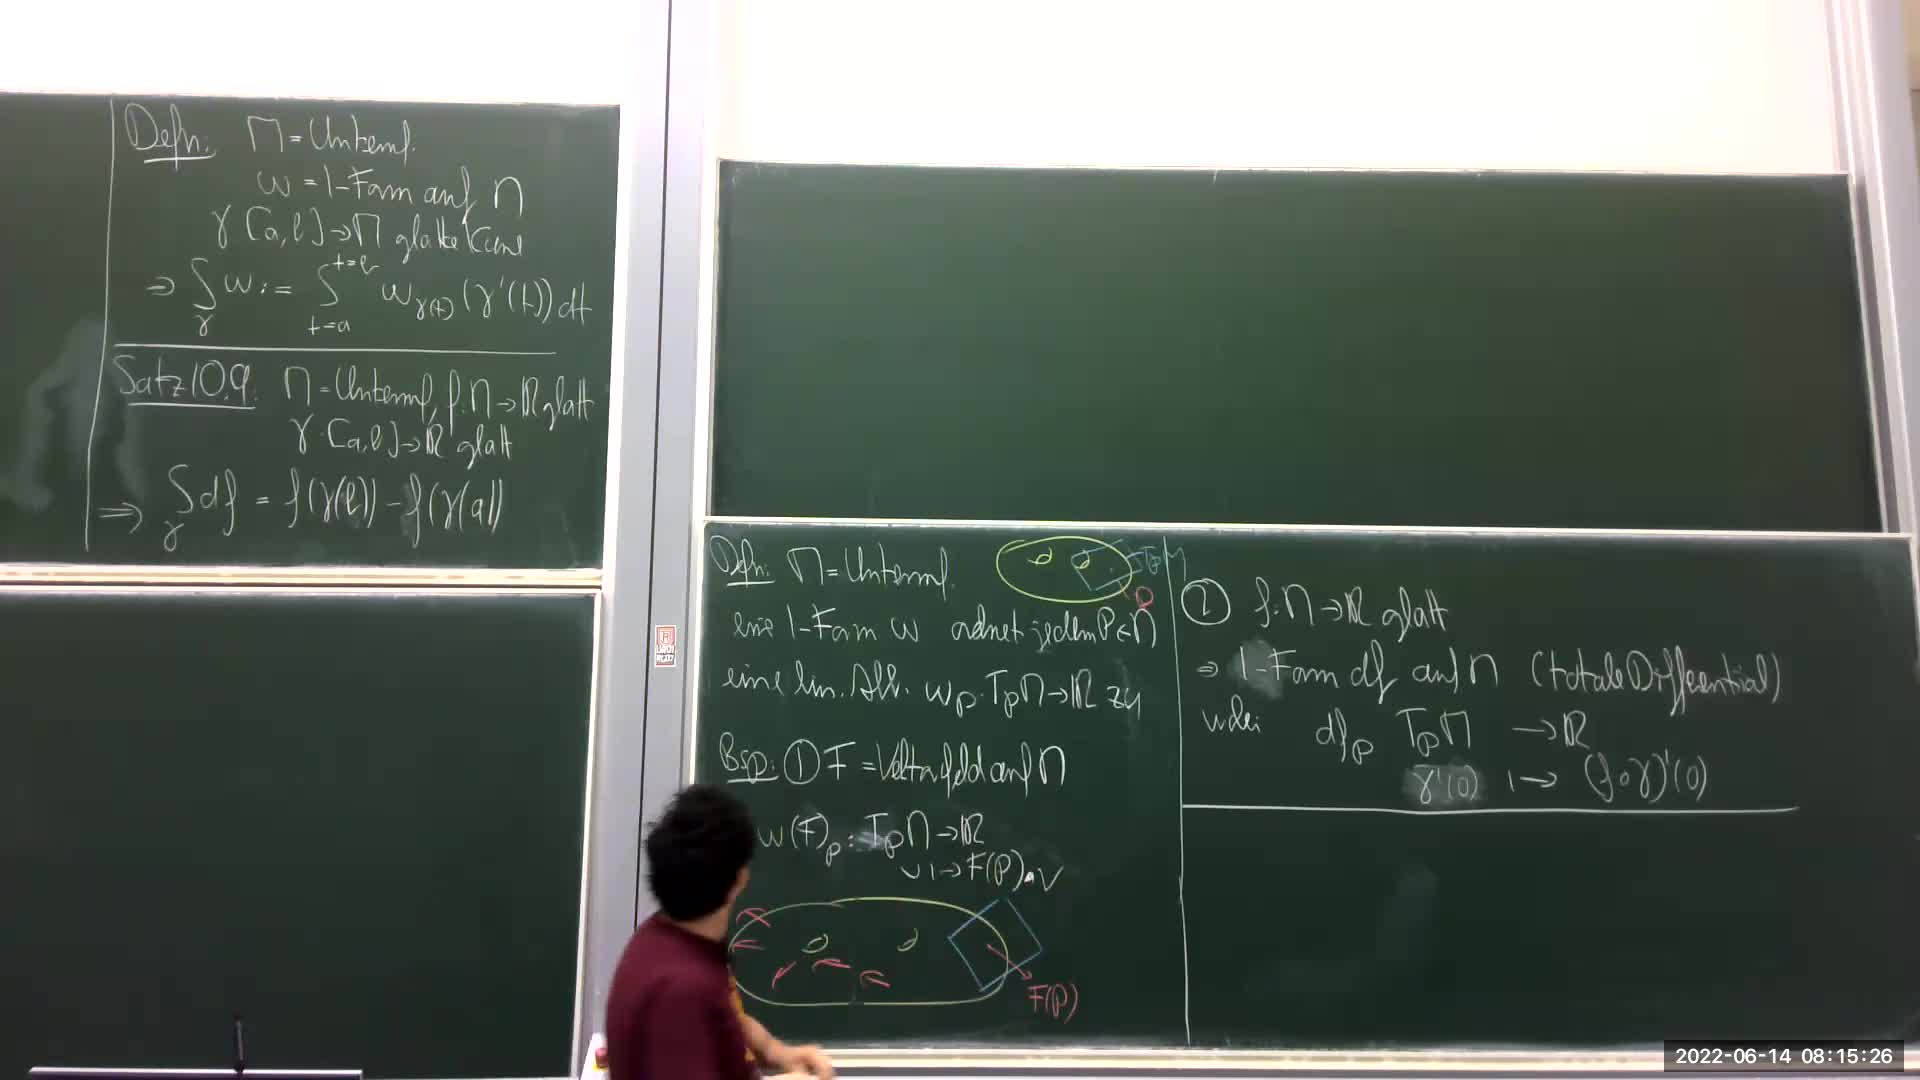 Defn: M = Untermf.
ω = 1-Form auf M
γ: [a,b] → M glatte Kurve
⇒ ∫_γ ω := ∫_{t=a}^{t=b} ω_{γ(t)} (γ'(t)) dt
Satz 10.9: M = Untermf, f: M → ℝ glatt
γ: [a,b] → ℝ glatt
⇒ ∫_γ df = f(γ(b)) - f(γ(a))
Defn: M = Untermf.
T_pM
P
eine 1-Form ω ordnet jedem P ∈ M
eine lin. Abb. ω_p: T_pM → ℝ zu
Bsp: ① F = Vektorfeld auf M
ω(F)_p: T_pM → ℝ
v ↦ F(P)•v
F(P)
② f: M → ℝ glatt
⇒ 1-Form df auf M (totale Differential)
wobei df_p T_pM → ℝ
γ'(0) ↦ (f∘γ)'(0)
2022-06-14 08:15:26